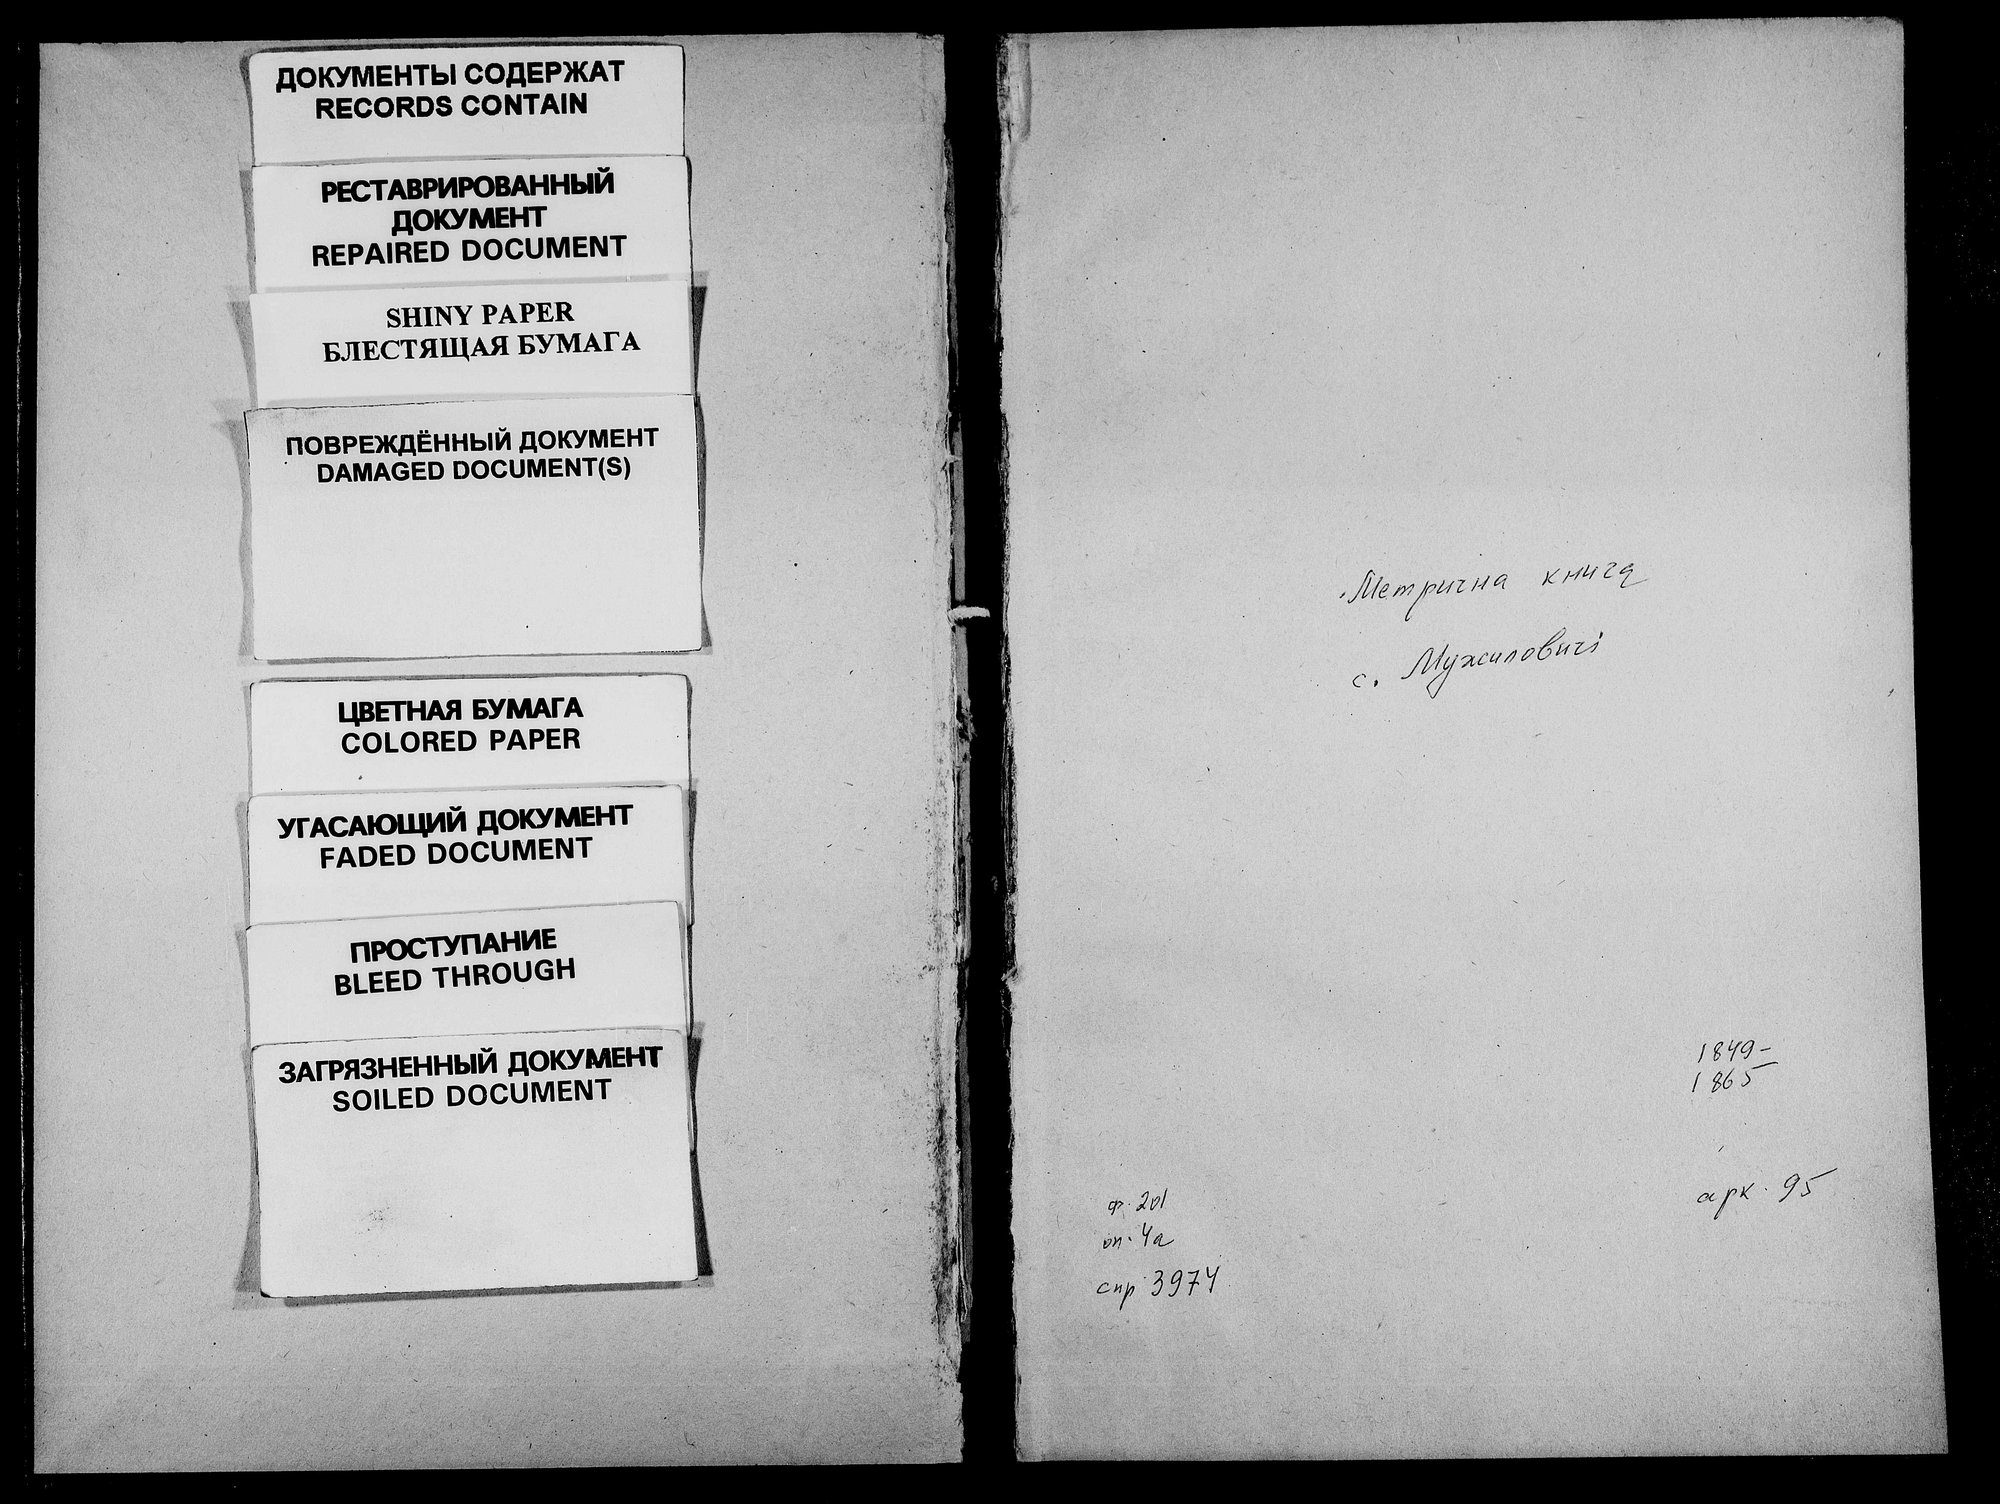 ДОКУМЕНТЫ СОДЕРЖАТ
RECORDS CONTAIN
РЕСТАВРИРОВАННЫЙ
ДОКУМЕНТ
REPAIRED DOCUMENT
SHINY PAPER
БЛЕСТЯЩАЯ БУМАГА
ПОВРЕЖДЁННЫЙ ДОКУМЕНТ
DAMAGED DOCUMENT(S)
ЦВЕТНАЯ БУМАГА
COLORED PAPER
УГАСАЮЩИЙ ДОКУМЕНТ
FADED DOCUMENT
ПРОСТУПАНИЕ
BLEED THROUGH
ЗАГРЯЗНЕННЫЙ ДОКУМЕНТ
SOILED DOCUMENT
Метрична книга
с. Мужиловичі
1849-
1865
арк. 95
ф. 201
оп. 4а
спр 3974